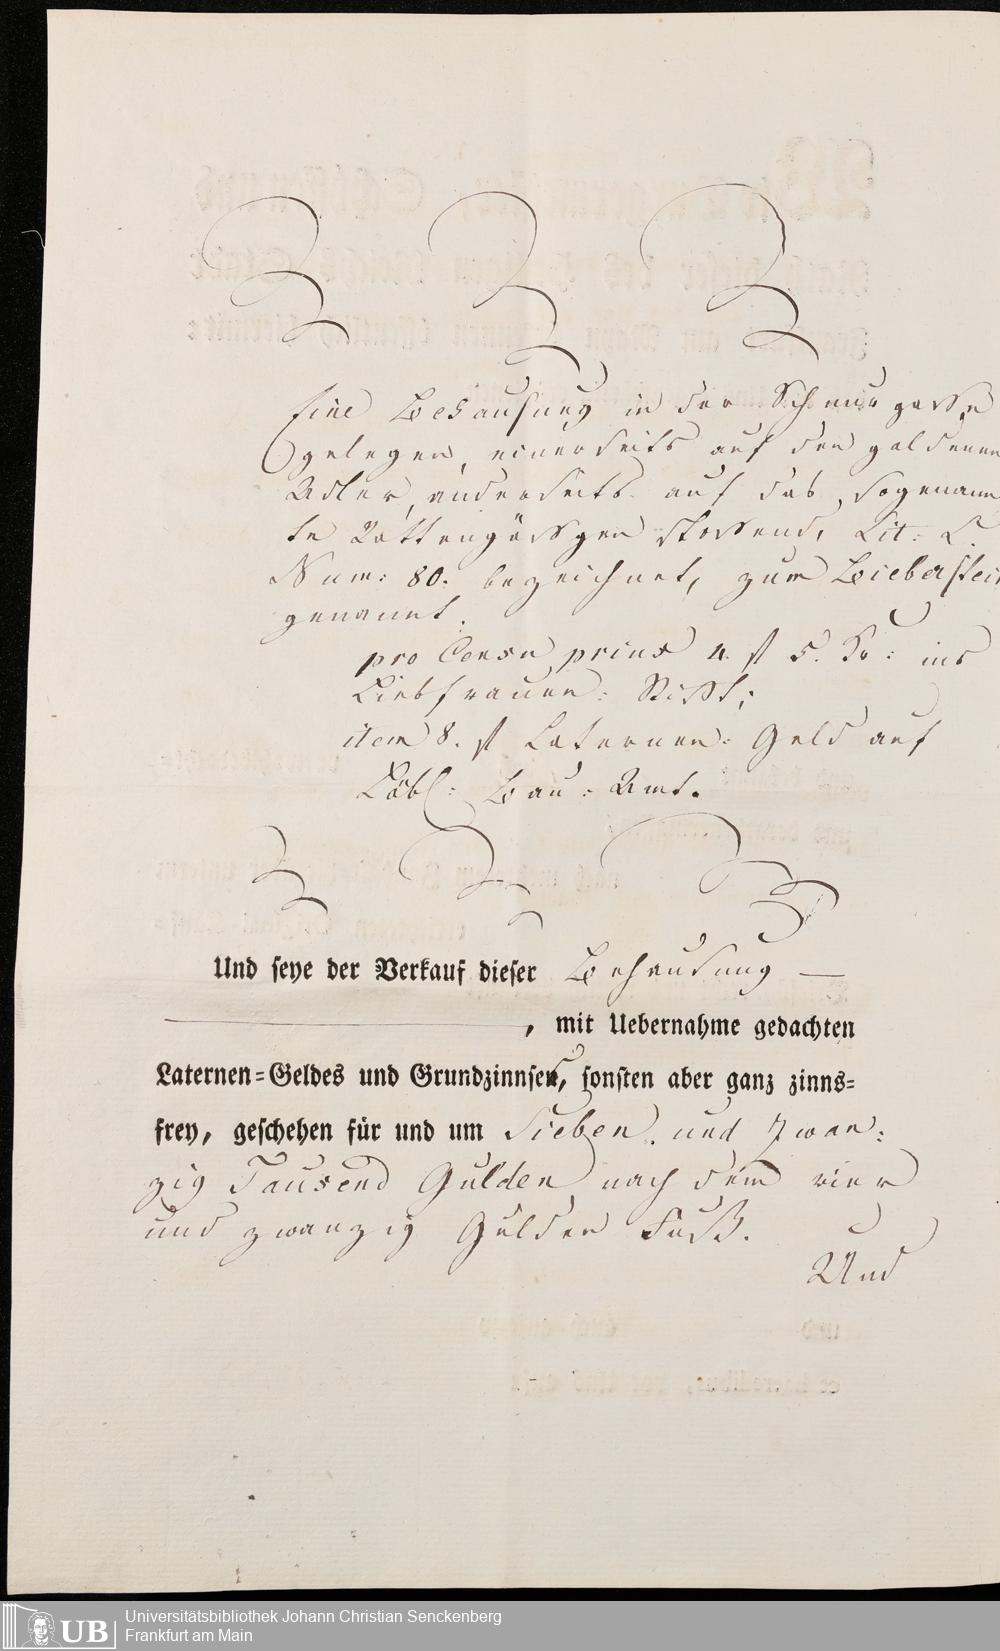 Eine Behausung in der Schnurgasse
gelegen, einerseits auf den goldenen
Adler, anderseits auf das sogenann
te Rattengässgen stossend, Lit: L.
Num: 80. bezeichnet, zum Bieberstein
genannt.
pro Censu prius 4. fl 5. Kr: ins
Liebfrauen: Stifft;
item 8. fl Laternen: Geld auf
Löbl: Bau: Amt.
Und seye der Verkauf dieser Behausung —
, mit Uebernahme gedachten
Laternen=Geldes und Grundzinnses, sonsten aber ganz zinns=
frey, geschehen für und um Sieben und Zwan:
zig Tausend Gulden nach dem vier
und zwanzig Gulden Fuß.
Und
UB
Universitätsbibliothek Johann Christian Senckenberg
Frankfurt am Main